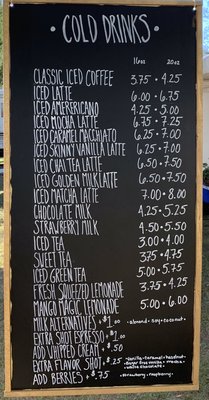 • COLD DRINKS •
16oz 20oz
CLASSIC ICED COFFEE 3.75 • 4.25
ICED LATTE 6.00 • 6.75
ICED AMERERICANO 4.25 • 5.00
ICED MOCHA LATTE 6.75 • 7.25
ICED CARAMEL MACCHIATO 6.25 • 7.00
ICED SKINNY VANILLA LATTE 6.25 • 7.00
ICED CHAI TEA LATTE 6.50 • 7.50
ICED GOLDEN MILKLATTE 6.50 • 7.50
ICED MATCHA LATTE 7.00 • 8.00
CHOCOLATE MILK 4.25 • 5.25
STRAWBERRY MILK 4.50 • 5.50
ICED TEA 3.00 • 4.00
SWEET TEA 3.75 • 4.75
ICED GREEN TEA 5.00 • 5.75
FRESH SQUEEZED LEMONADE 3.75 • 4.25
MANGO MAGIC LEMONADE 5.00 • 6.00
MILK ALTERNATIVES + $1.00 • almond • soy • coconut •
EXTRA ESPRESSO SHOT + $1.00
ADD WHIPPED CREAM + $.50
EXTRA FLAVOR SHOT + $.25 • vanilla • caramel • hazelnut
ADD BERRIES + $.75 • strawberry • raspberry •